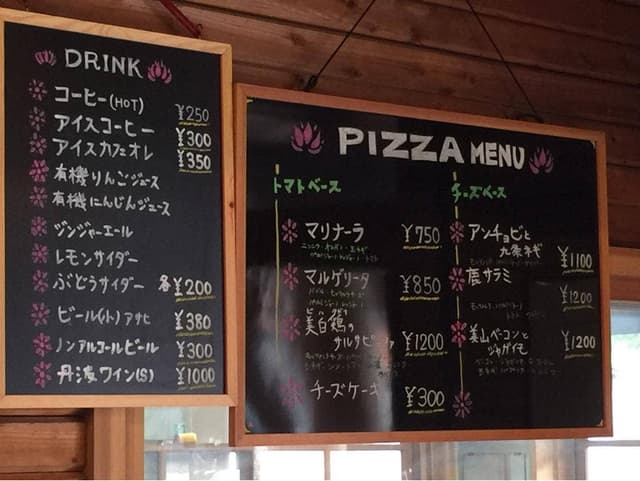 DRINK
コーヒー(HOT) ¥250
アイスコーヒー ¥300
アイスカフェオレ ¥350
有機りんごジュース
有機にんじんジュース
ジンジャーエール
レモンサイダー
ぶどうサイダー 各¥200
ビール(小)アサヒ ¥380
ノンアルコールビール ¥300
丹波ワイン(S) ¥1000
PIZZA MENU
トマトベース
マリナーラ ¥750
マルゲリータ ¥850
美白鶏の
サルサピザ ¥1200
チーズケーキ ¥300
チーズベース
アンチョビと
九条ネギ ¥1100
鹿サラミ
¥1200
美山ベーコンと
ジャガイモ ¥1200